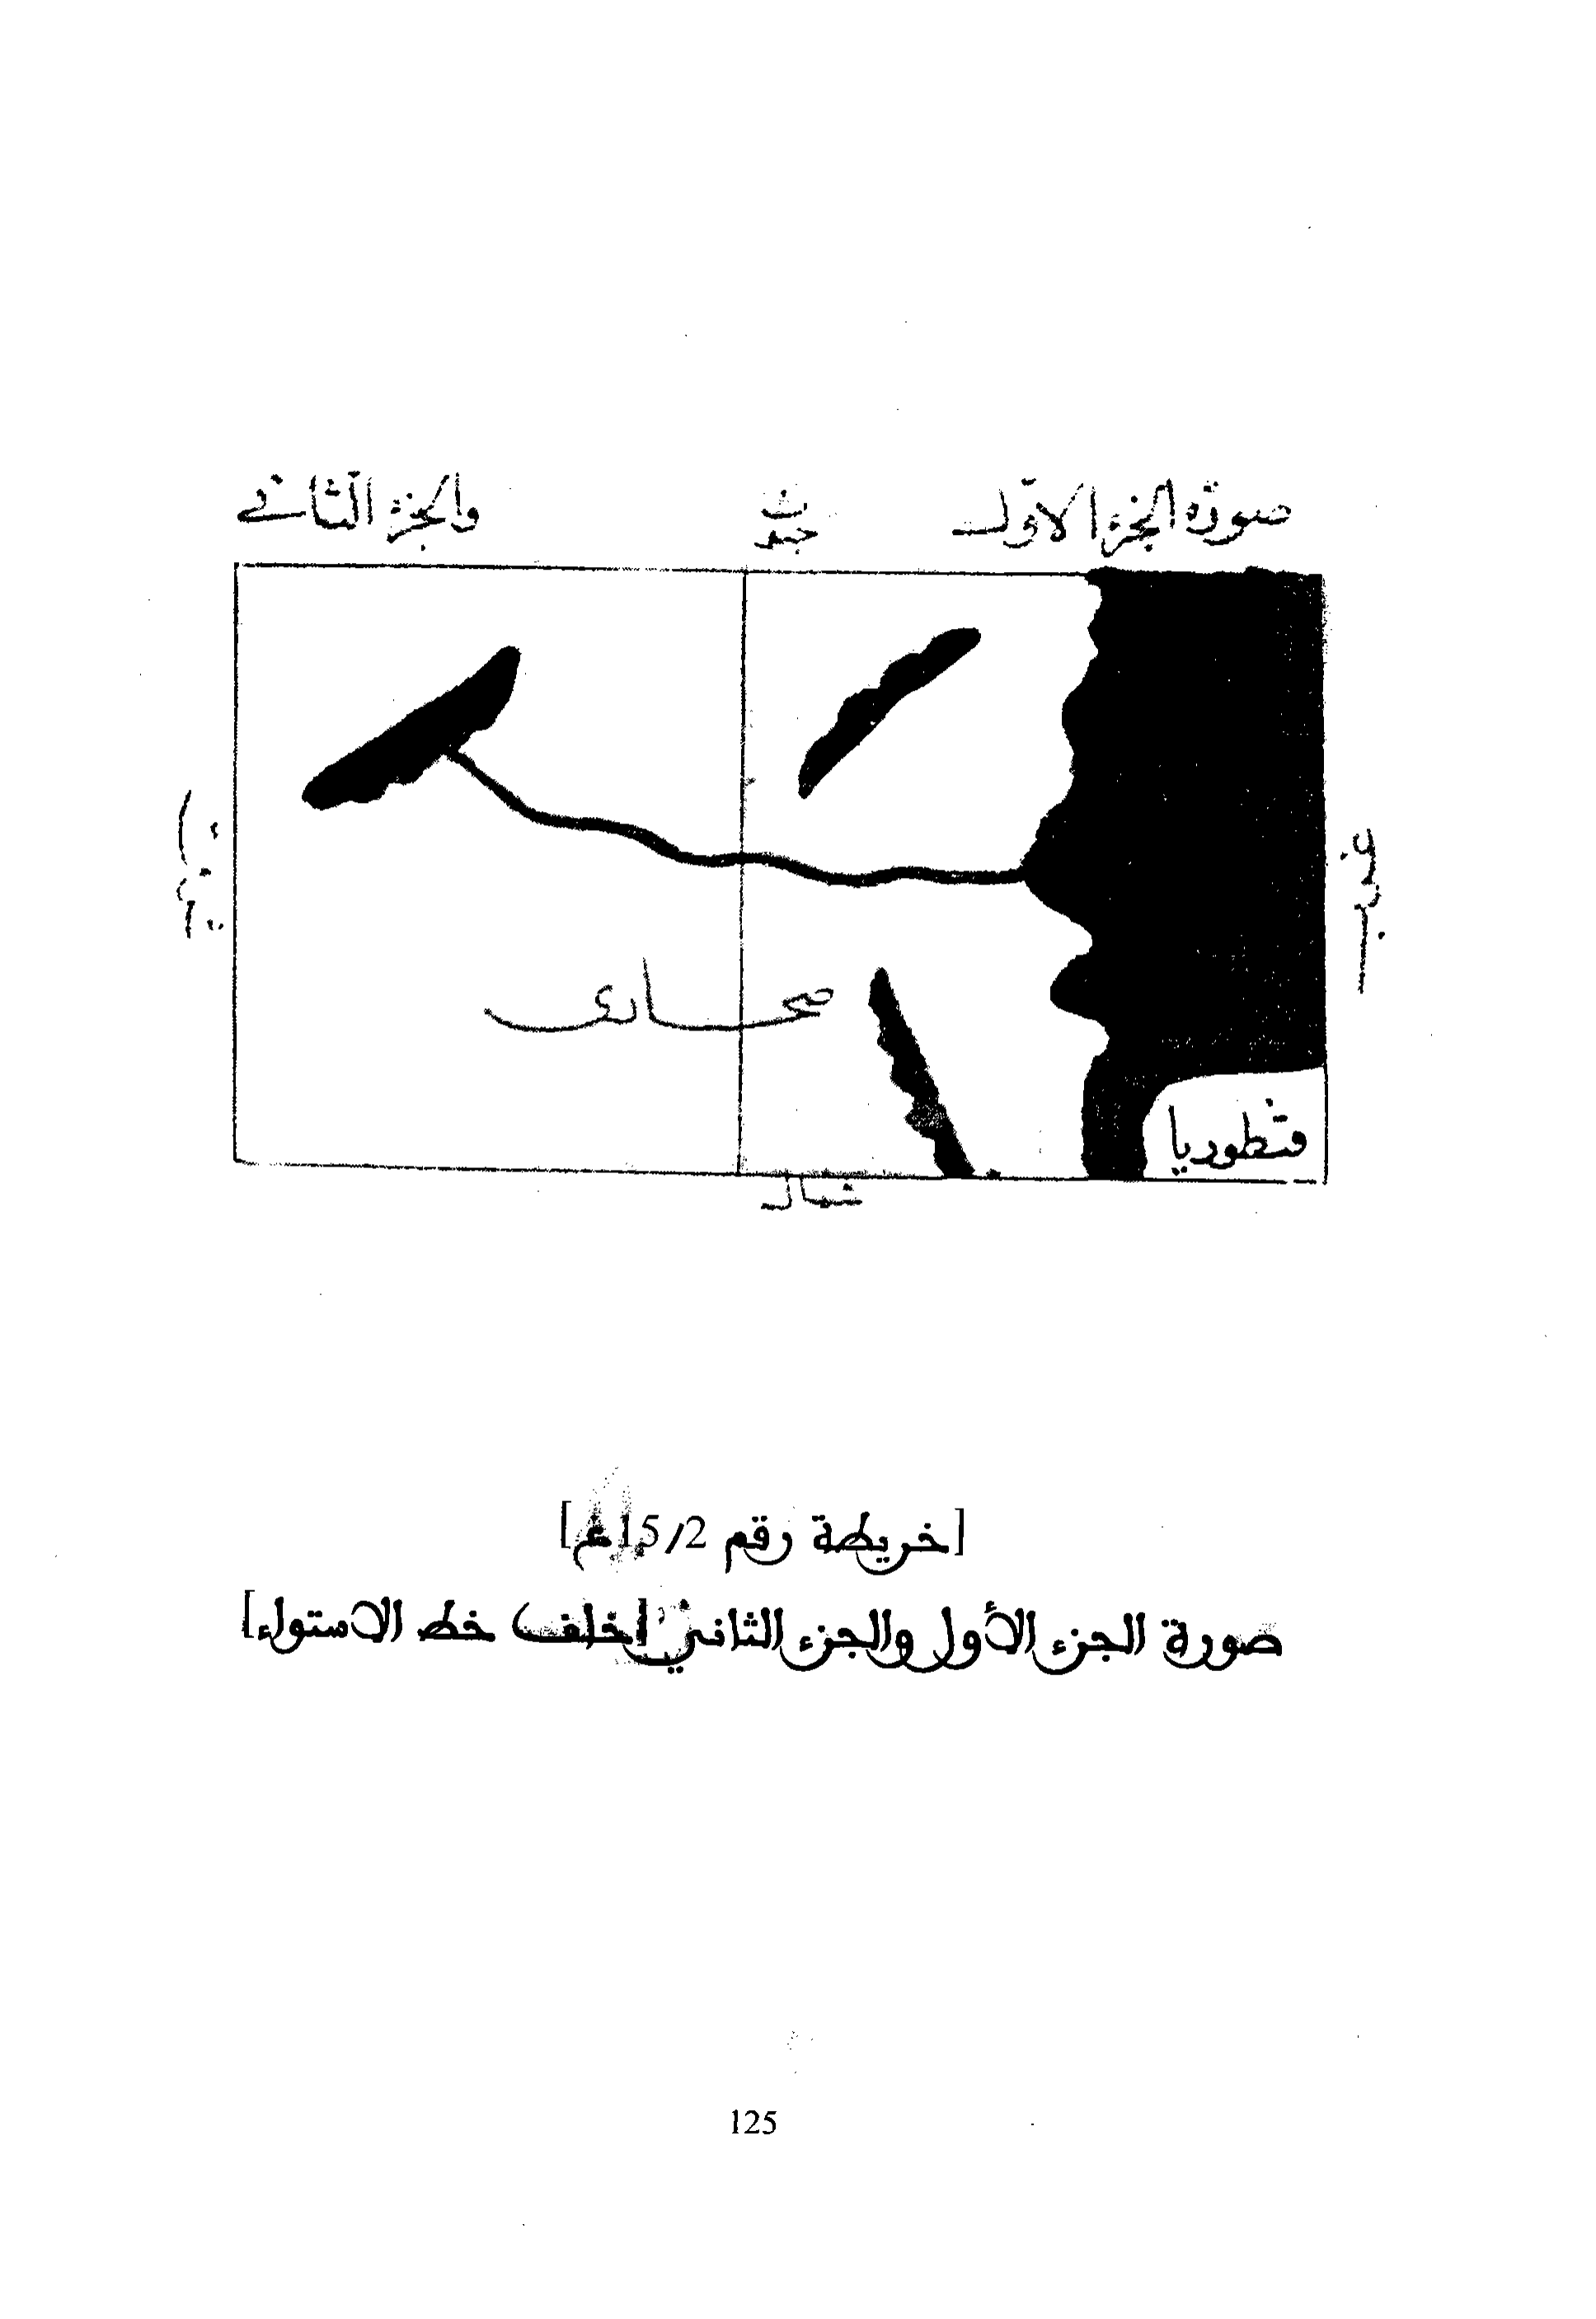 صورة الجزء الاول
جنوب
والجزء الثاني
غرب
صحارى
قنطوريا
شمال
[خريطة رقم 15/2م]
صورة الجزء الأول والجزء الثاني [خلف خط الاستواء]
125